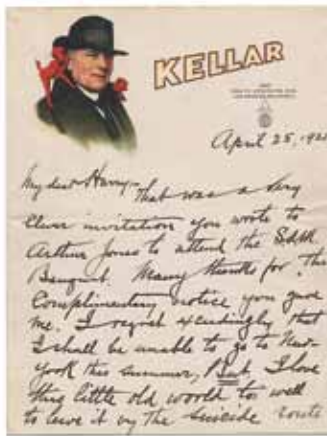 KELLAR
April 25, 192
My dear Harry— That was a very
Clever invitation you wrote to
Arthur Jones to attend the SAM
Banquet. Many thanks for the
Complimentary notice you gave
me. I regret exceedingly that
I shall be unable to go to New-
york this summer, But I love
this little old world too well
to leave it by the suicide route